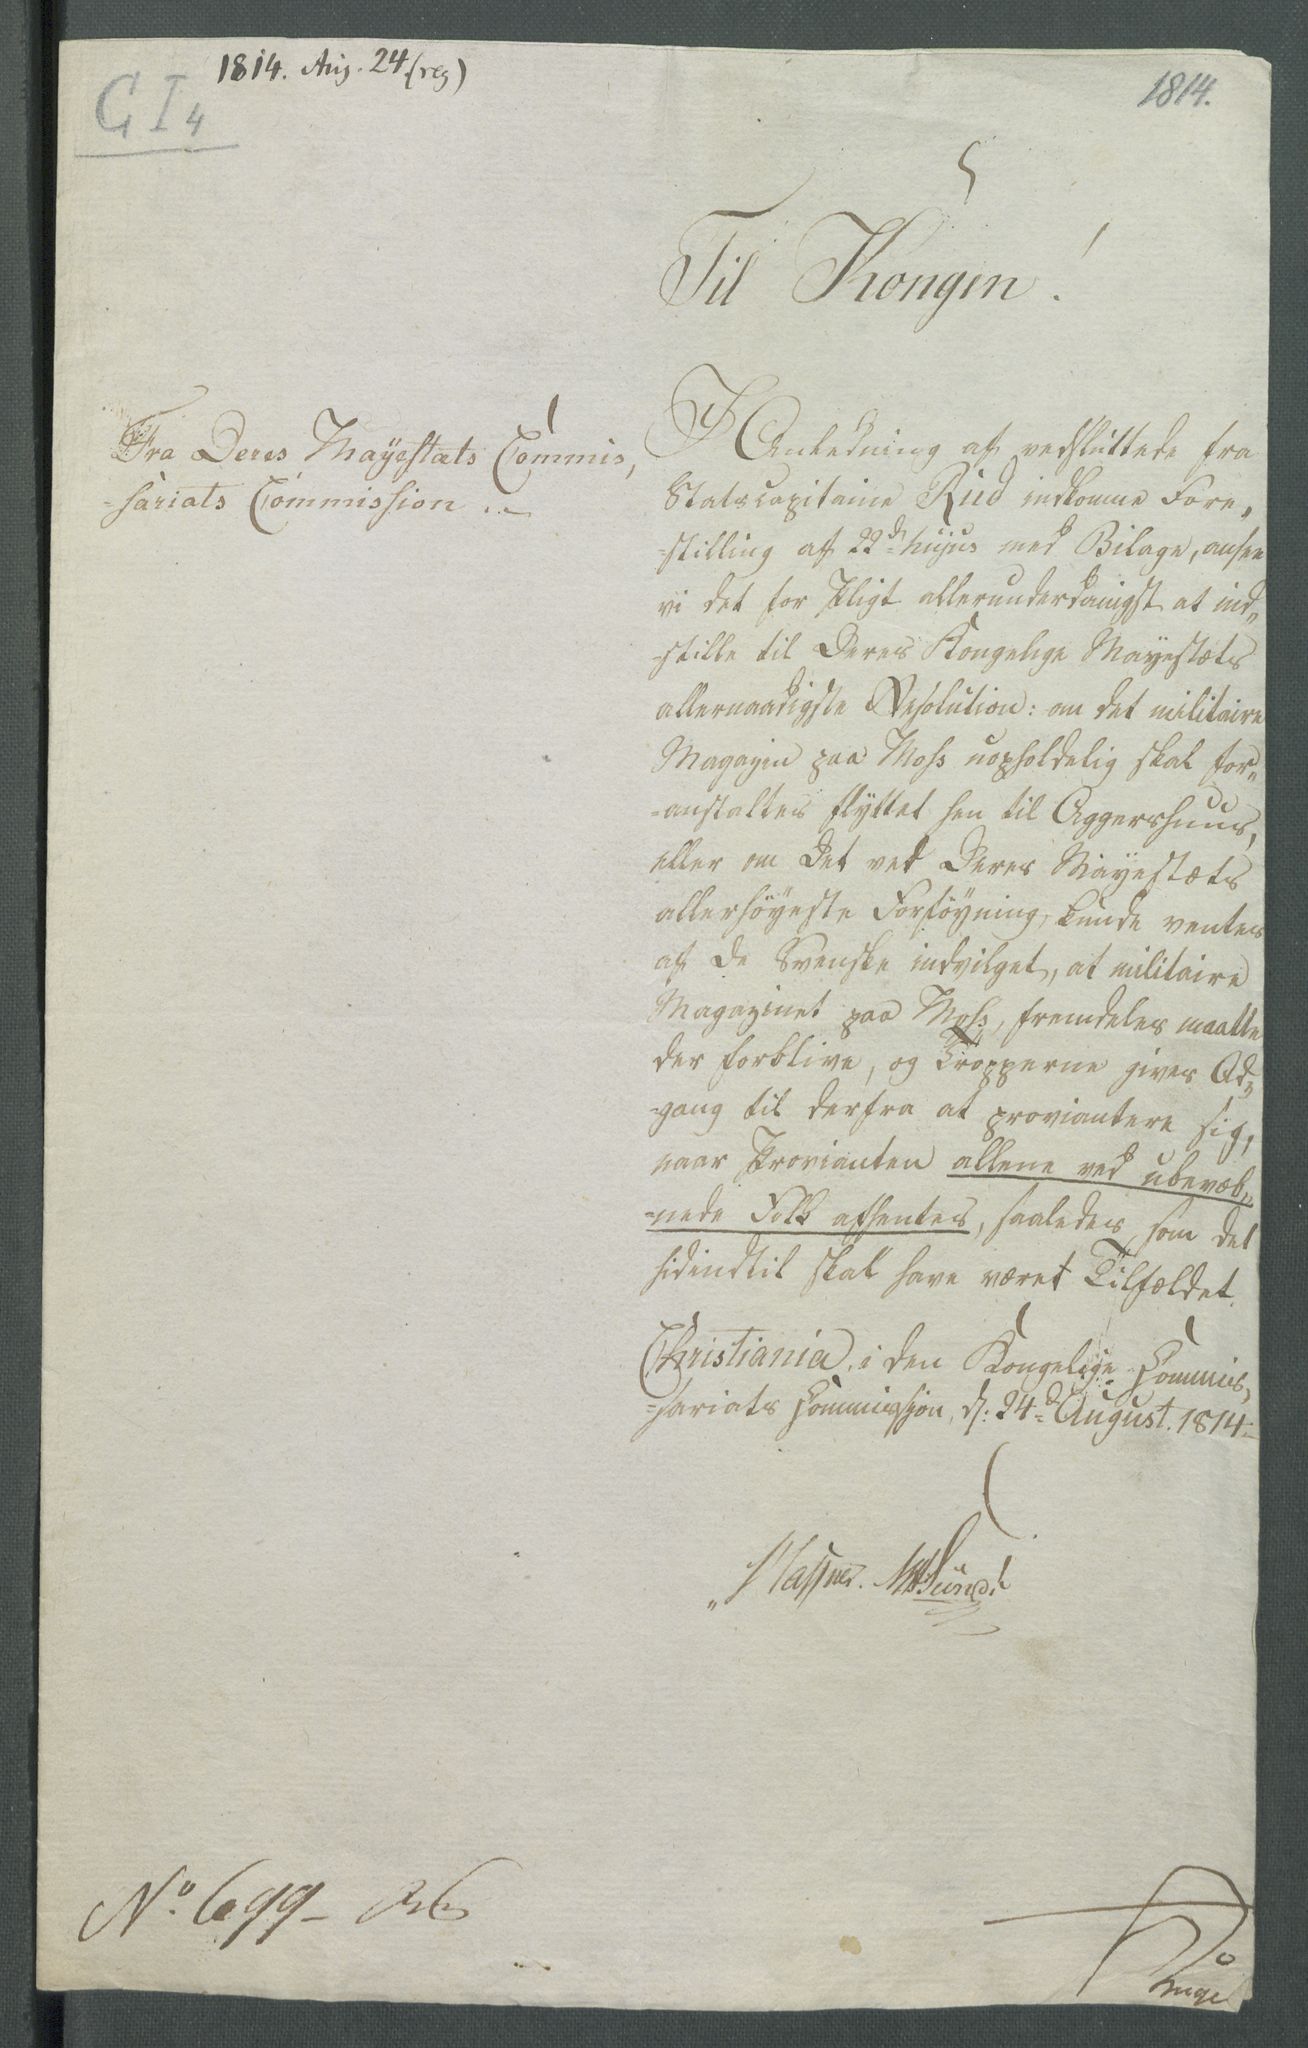 1814. Aug. 24 (reg)
G I 4
1814.
Til Kongen!
Fra Deres Mayestæts Commis,
-sariats Commission.
I Anledning af vedsluttede fra
Stabscapitaine Rüd indkomne Fore,
-stilling af 22d hujus med Bilage, ansee
vi det for Pligt allerunderdanigst at ind,
-stille til Deres Kongelige Mayestæts
allernaadigste Resolution: om det militaire
Magazin paa Moss uopholdelig skal for,
-anstaltes flyttet hen til Aggershuus,
eller om Det ved Deres Mayestæts
allerhöyeste Forföyning, kunde ventes
af De Svenske indvilget, at militaire
Magazinet paa Moss, fremdeles maatte
der forblive, og Tropperne gives Ad,
-gang til derfra at proviantere sig,
naar Provianten allene ved ubevæb,
-nede Folk afhentes, saaledes som det
hidindtil skal have været Tilfældet.
Christiania, i den Kongelige Commis,
-sariats Commission, d: 24d August. 1814
No. 699